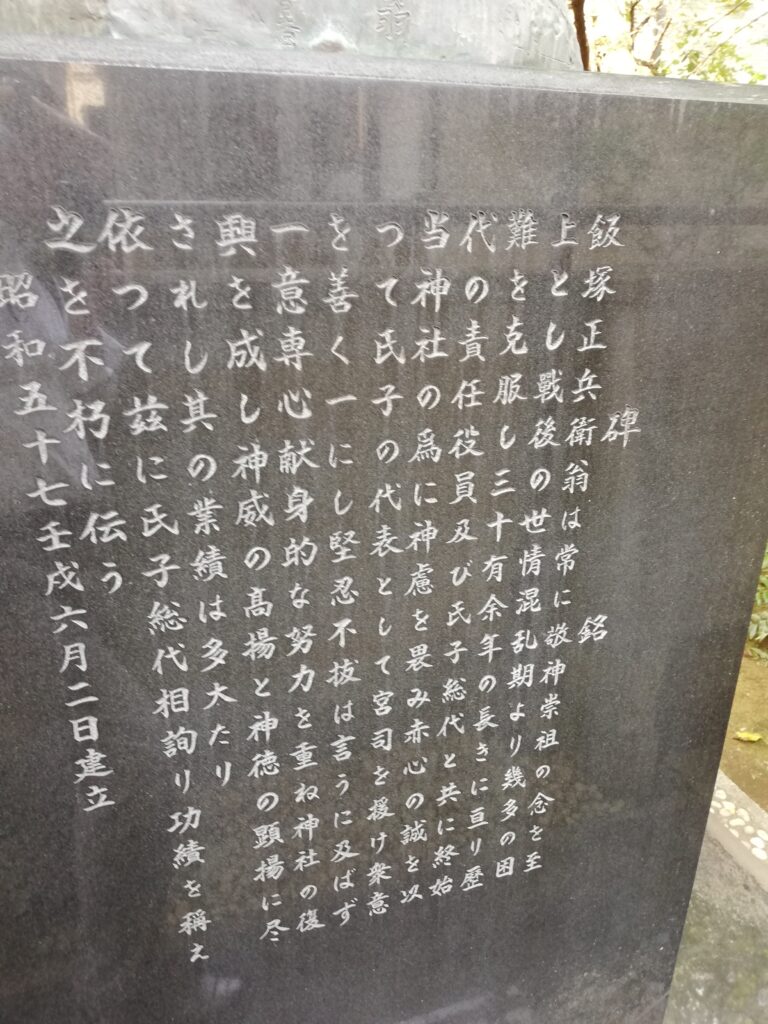 碑 銘
飯塚正兵衛翁は常に敬神崇祖の念を至
上とし戰後の世情混乱期より幾多の困
難を克服し三十有余年の長きに亘り歴
代の責任役員及び氏子総代と共に終始
当神社の爲に神慮を畏み赤心の誠を以
つて氏子の代表として宮司を援け衆意
を善く一にし堅忍不抜は言うに及ばず
一意専心献身的な努力を重ね神社の復
興を成し神威の高揚と神徳の顕揚に尽
されし其の業績は多大たり
依つて茲に氏子総代相詢り功績を稱え
之を不朽に伝う
昭和五十七壬戌六月二日建立
翁